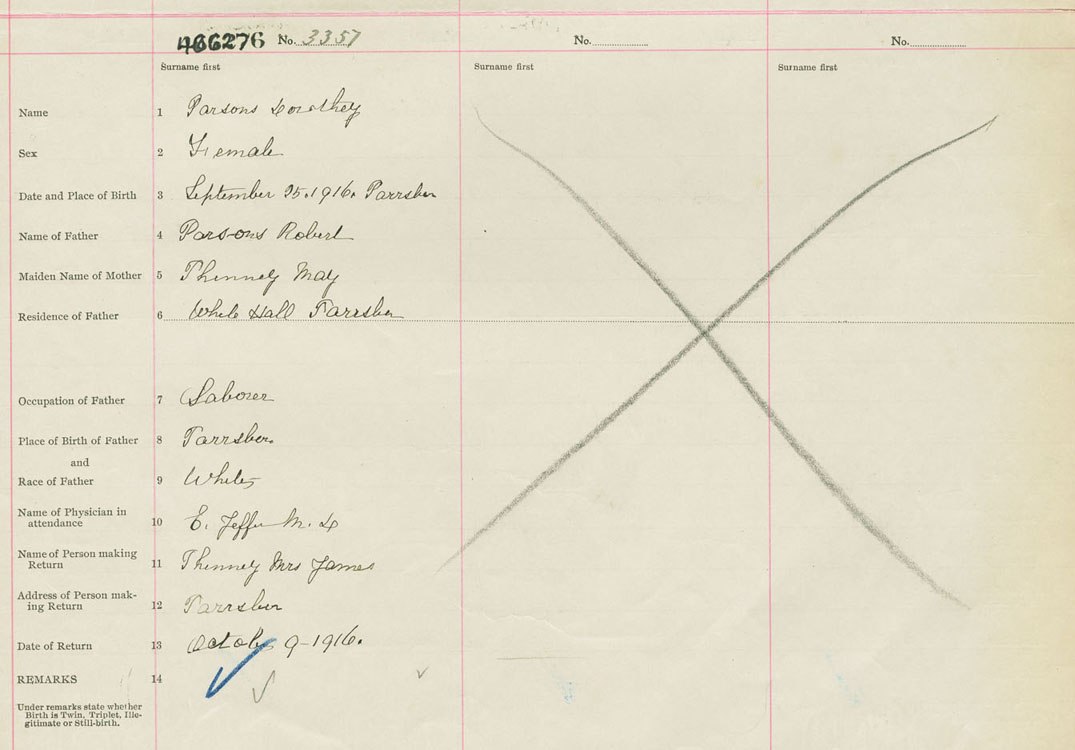 466276 No. 3357 No. No.
Surname first Surname first Surname first
Name 1 Parsons Dorothey
Sex 2 Female
Date and Place of Birth 3 September 25. 1916. Parrsboro
Name of Father 4 Parsons Robert
Maiden Name of Mother 5 May
Residence of Father 6 White Hall Parrsboro
Occupation of Father 7 Laborer
Place of Birth of Father 8 Parrsboro.
and
Race of Father 9 White
Name of Physician in
attendance 10 E. M. D
Name of Person making
Return 11 Mrs James
Address of Person mak-
ing Return 12 Parrsboro
Date of Return 13 October 9-1916.
REMARKS 14
Under remarks state whether
Birth is Twin, Triplet, Ille-
gitimate or Still-birth.